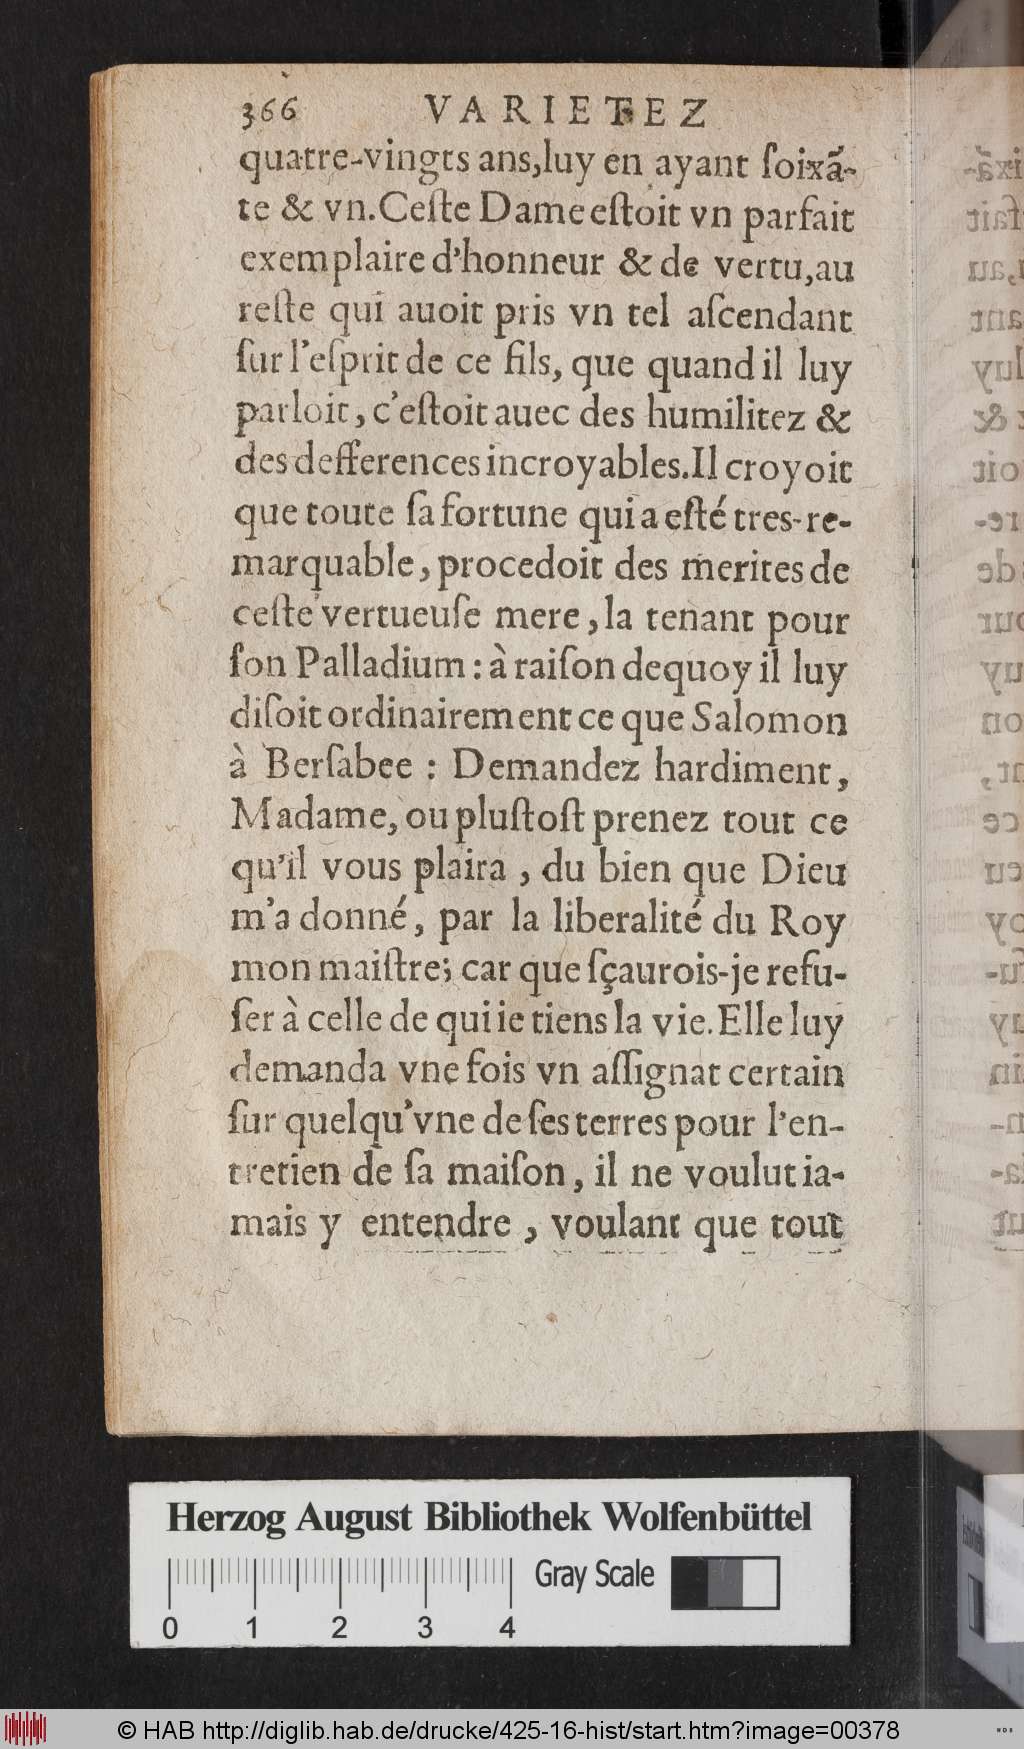 366 VARIETEZ
quatre-vingts ans,luy en ayant ſoixã-
te & vn.Ceſte Dame eſtoit vn parfait
exemplaire d'honneur & de vertu,au
reſte qui auoit pris vn tel aſcendant
ſur l'eſprit de ce fils, que quand il luy
parloit, c'eſtoit auec des humilitez &
des defferences incroyables.Il croyoit
que toute ſa fortune qui a eſté tres-re-
marquable, procedoit des merites de
ceſte vertueuſe mere, la tenant pour
ſon Palladium : à raiſon dequoy il luy
diſoit ordinairement ce que Salomon
à Berſabee : Demandez hardiment,
Madame, ou pluſtoſt prenez tout ce
qu'il vous plaira , du bien que Dieu
m'a donné, par la liberalité du Roy
mon maiſtre; car que ſçaurois-je refu-
ſer à celle de qui ie tiens la vie.Elle luy
demanda vne fois vn aſſignat certain
ſur quelqu'vne de ſes terres pour l'en-
tretien de ſa maiſon, il ne voulut ia-
mais y entendre , voulant que tout
Herzog August Bibliothek Wolfenbüttel
Gray Scale
0 1 2 3 4
© HAB http://diglib.hab.de/drucke/425-16-hist/start.htm?image=00378